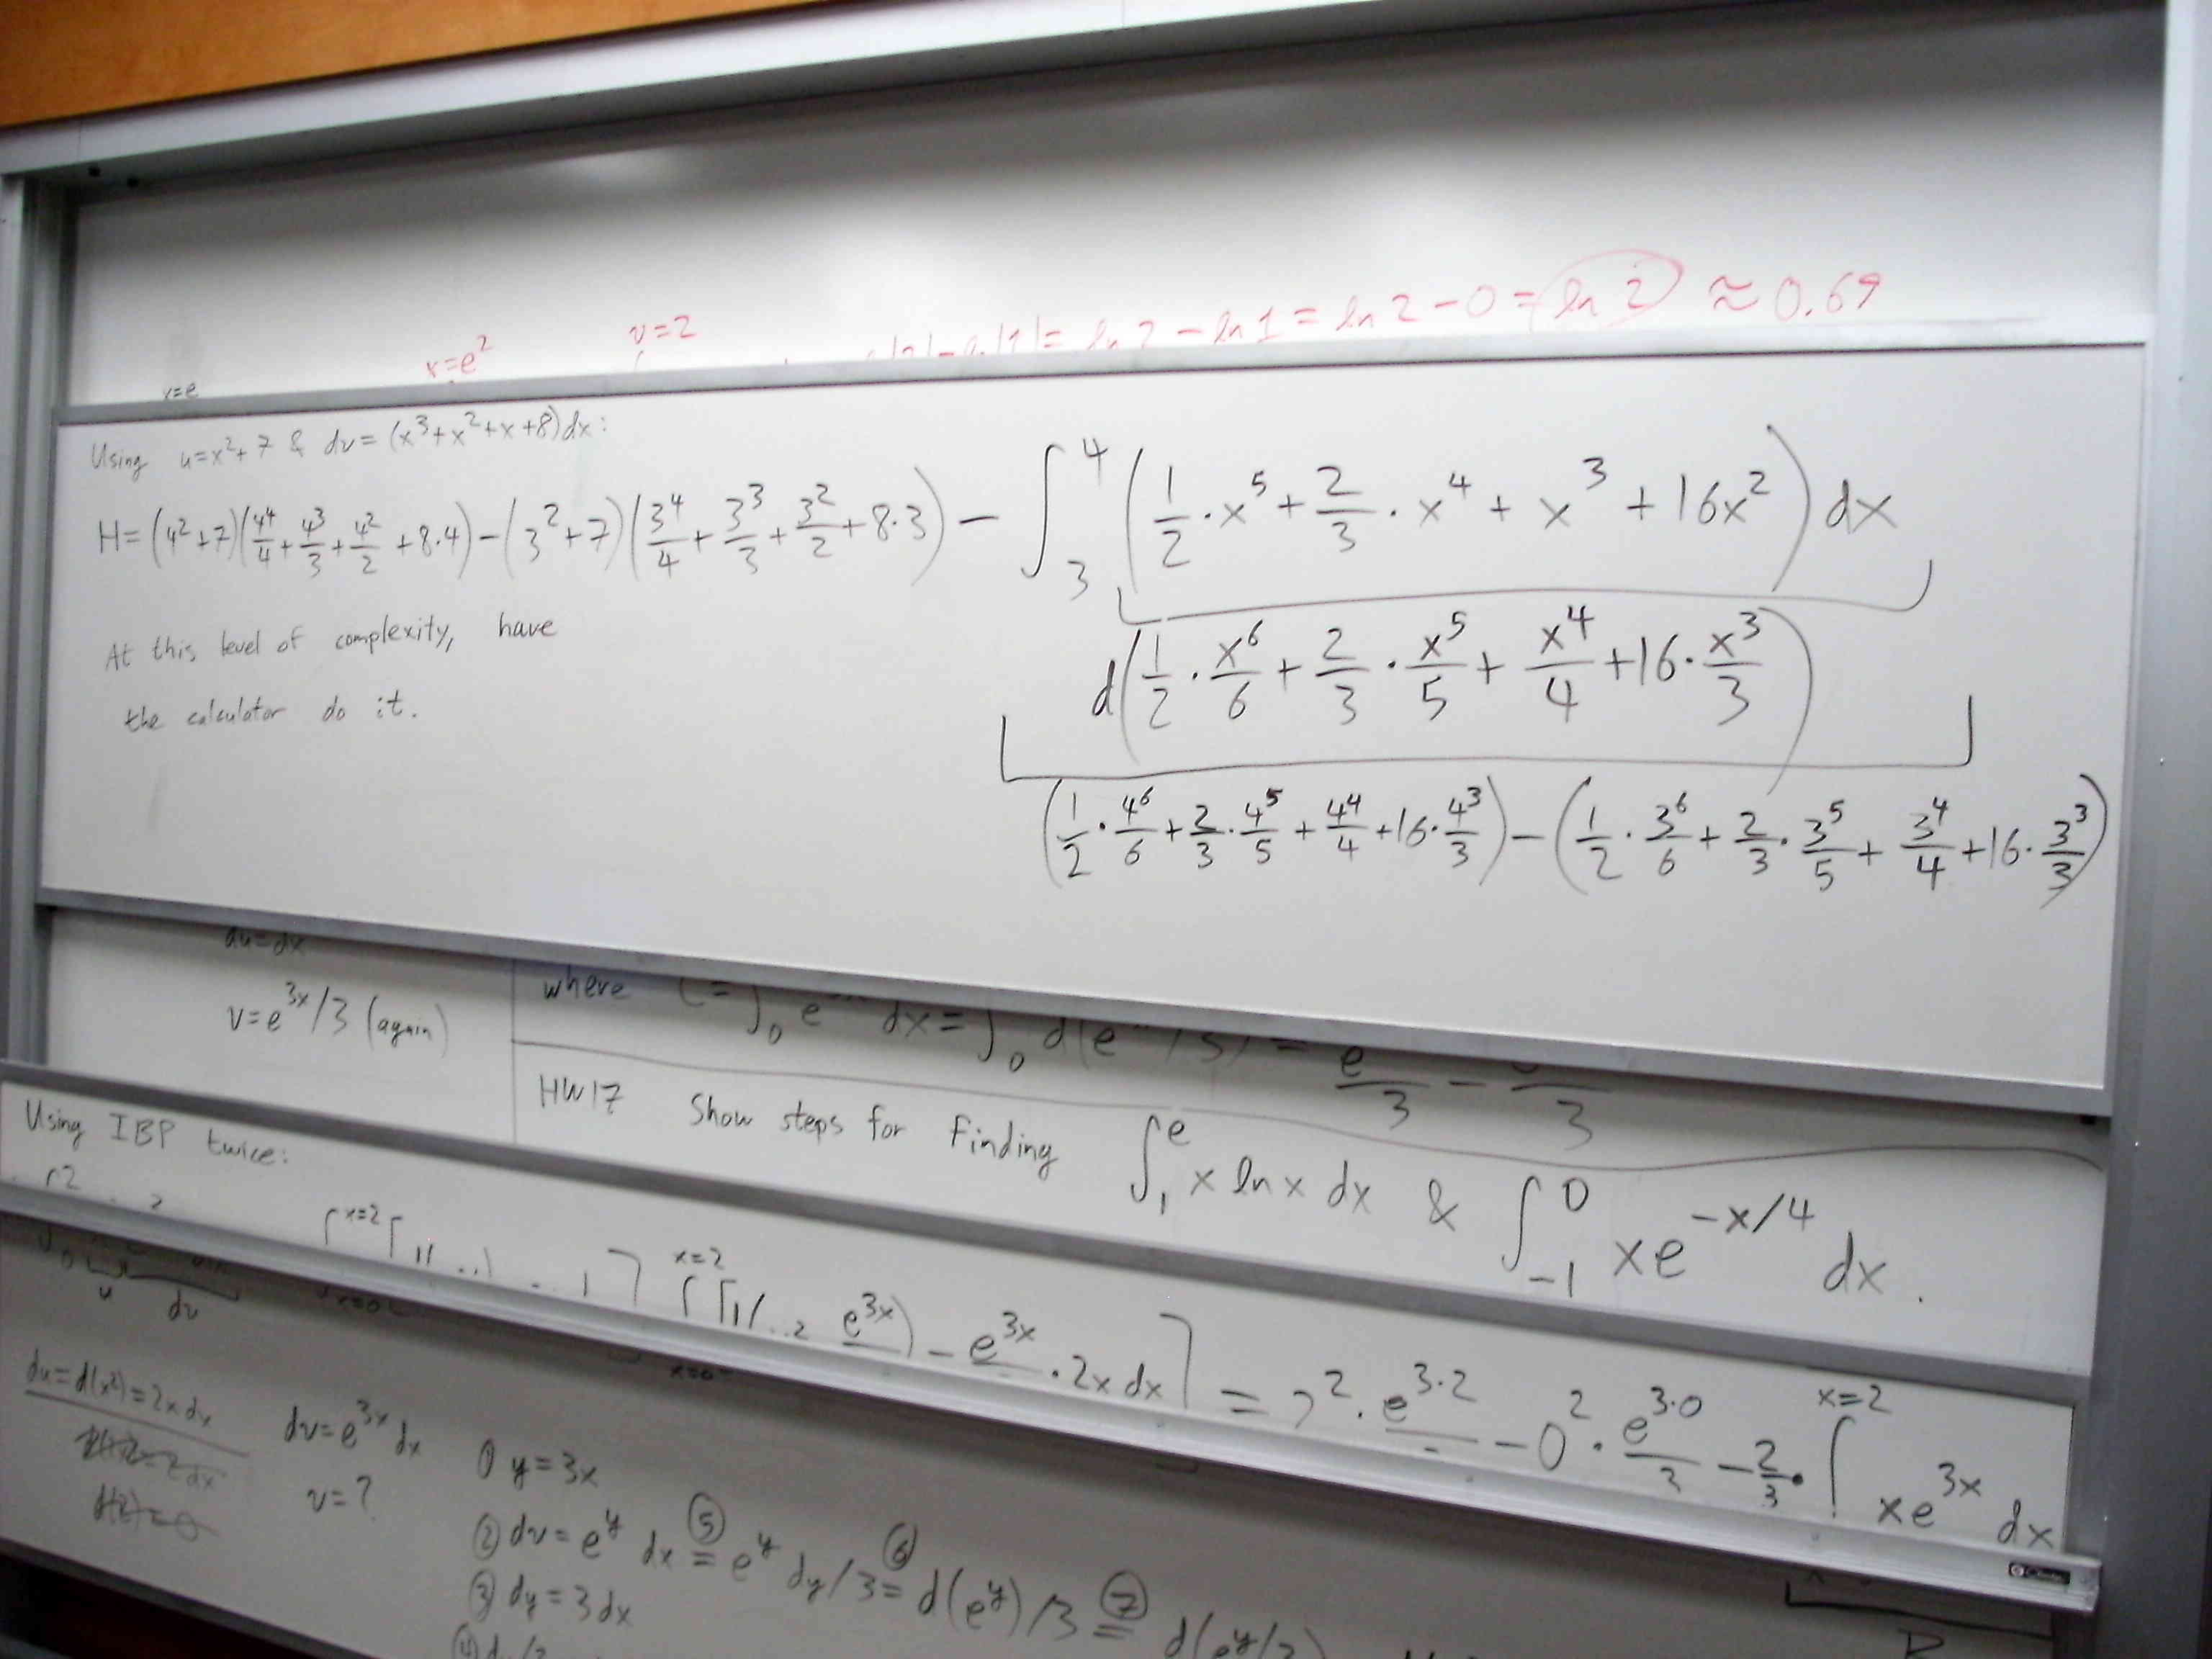 x=e
x=e²
v=2
= ln 2 - ln 1 = ln 2 - 0 = ln 2 ≈ 0.69
Using u=x²+7 & dv=(x³+x²+x+8)dx:
H=(4²+7)(4⁴/4+4³/3+4²/2+8·4)-(3²+7)(3⁴/4+3³/3+3²/2+8·3)-∫₃⁴(1/2·x⁵+2/3·x⁴+x³+16x²)dx
d(1/2·x⁶/6+2/3·x⁵/5+x⁴/4+16·x³/3)
(1/2·4⁶/6+2/3·4⁵/5+4⁴/4+16·4³/3)-(1/2·3⁶/6+2/3·3⁵/5+3⁴/4+16·3³/3)
At this level of complexity, have
the calculator do it.
du=dx
v=e³ˣ/3 (again)
where
HW17 Show steps for finding ∫₁ᵉ x ln x dx & ∫₋₁⁰ xe^(-x/4) dx.
Using IBP twice:
x=2
x=2
e³ˣ) - e³ˣ · 2x dx] = 2² · e^(3·2) - 0² · e^(3·0)/3 - 2/3 · ∫^(x=2) xe³ˣ dx
u dv
du=d(x²)=2x dx
dv=e³ˣ dx
v=?
① y=3x
② dv=eʸ dx ⑤= eʸ dy/3 ⑥= d(eʸ)/3 ⑦= d(eʸ/3)
③ dy=3dx